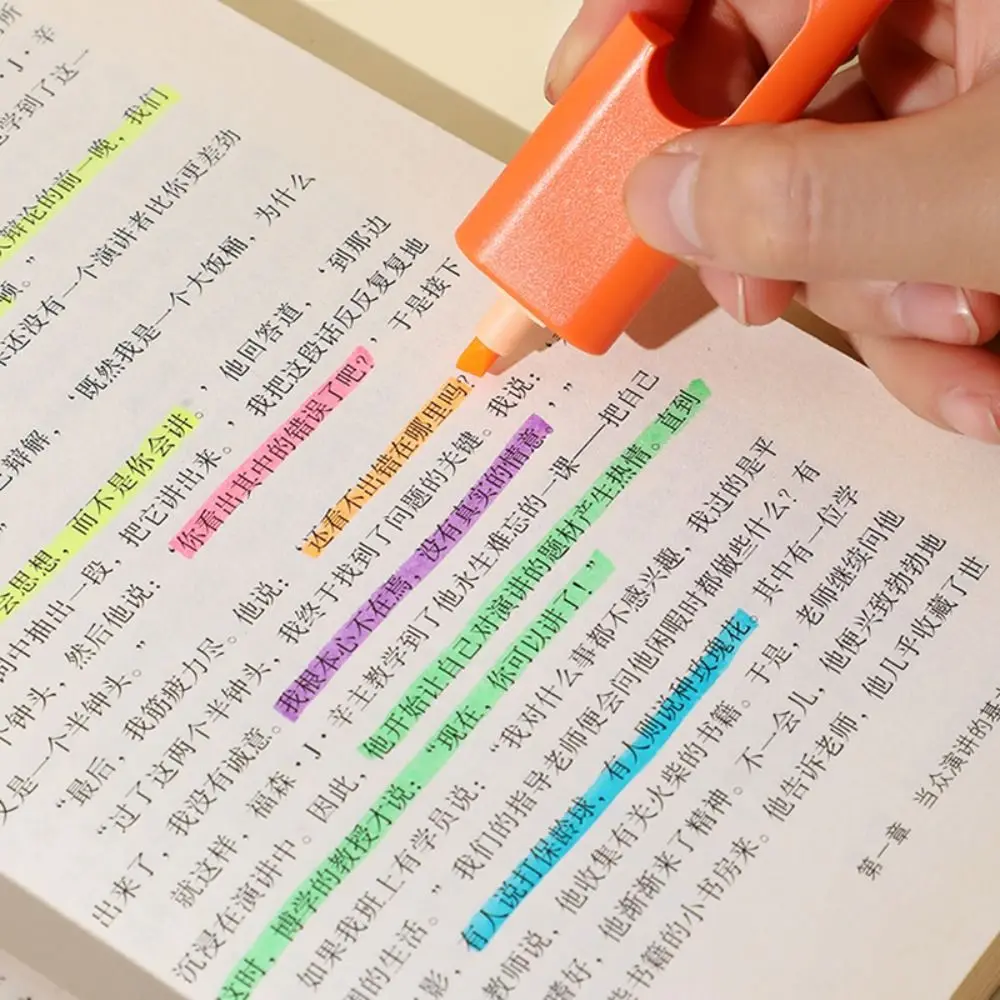 所
·J·辛
学到了这一
大辩论的前一晚，我们
顿。”
还没有一个演讲者比你更差劲
辩解，‘既然我是一个大饭桶，为什么
会思想，而不是你会讲。’他回答道，‘到那边
间中抽出一段，把它讲出来。’我把这段话反反复复地
个钟头，然后他说：‘你看出其中的错误了吧？’于是接下
又是一个半钟头。”
“最后，我筋疲力尽。他说：‘还看不出错在哪里吗？’
“过了这两个半钟头，我终于找到了问题的关键。我说：
出来了，我没有诚意。我根本心不在焉，没有真实的情意。’”
就这样，福森·J·辛主教学到了他永生难忘的一课——把自己
沉浸在演讲中。因此，他开始让自己对演讲的题材产生热情。直到
这时，博学的教授才说：“现在，你可以讲了！”
如果我班上有学员说：“我对什么事都不感兴趣，我过的是平
的生活。”我们的指导老师便会问他闲暇时都做些什么？有
影，有人说打保龄球，有人则说种玫瑰花。其中有一位学
教师说，他收集有关火柴的书籍。于是，老师继续问他
嗜好，他渐渐来了精神。不一会儿，他便兴致勃勃地
些书籍的小书房来。他告诉老师，他几乎收藏了世
第一章 当众演讲的基